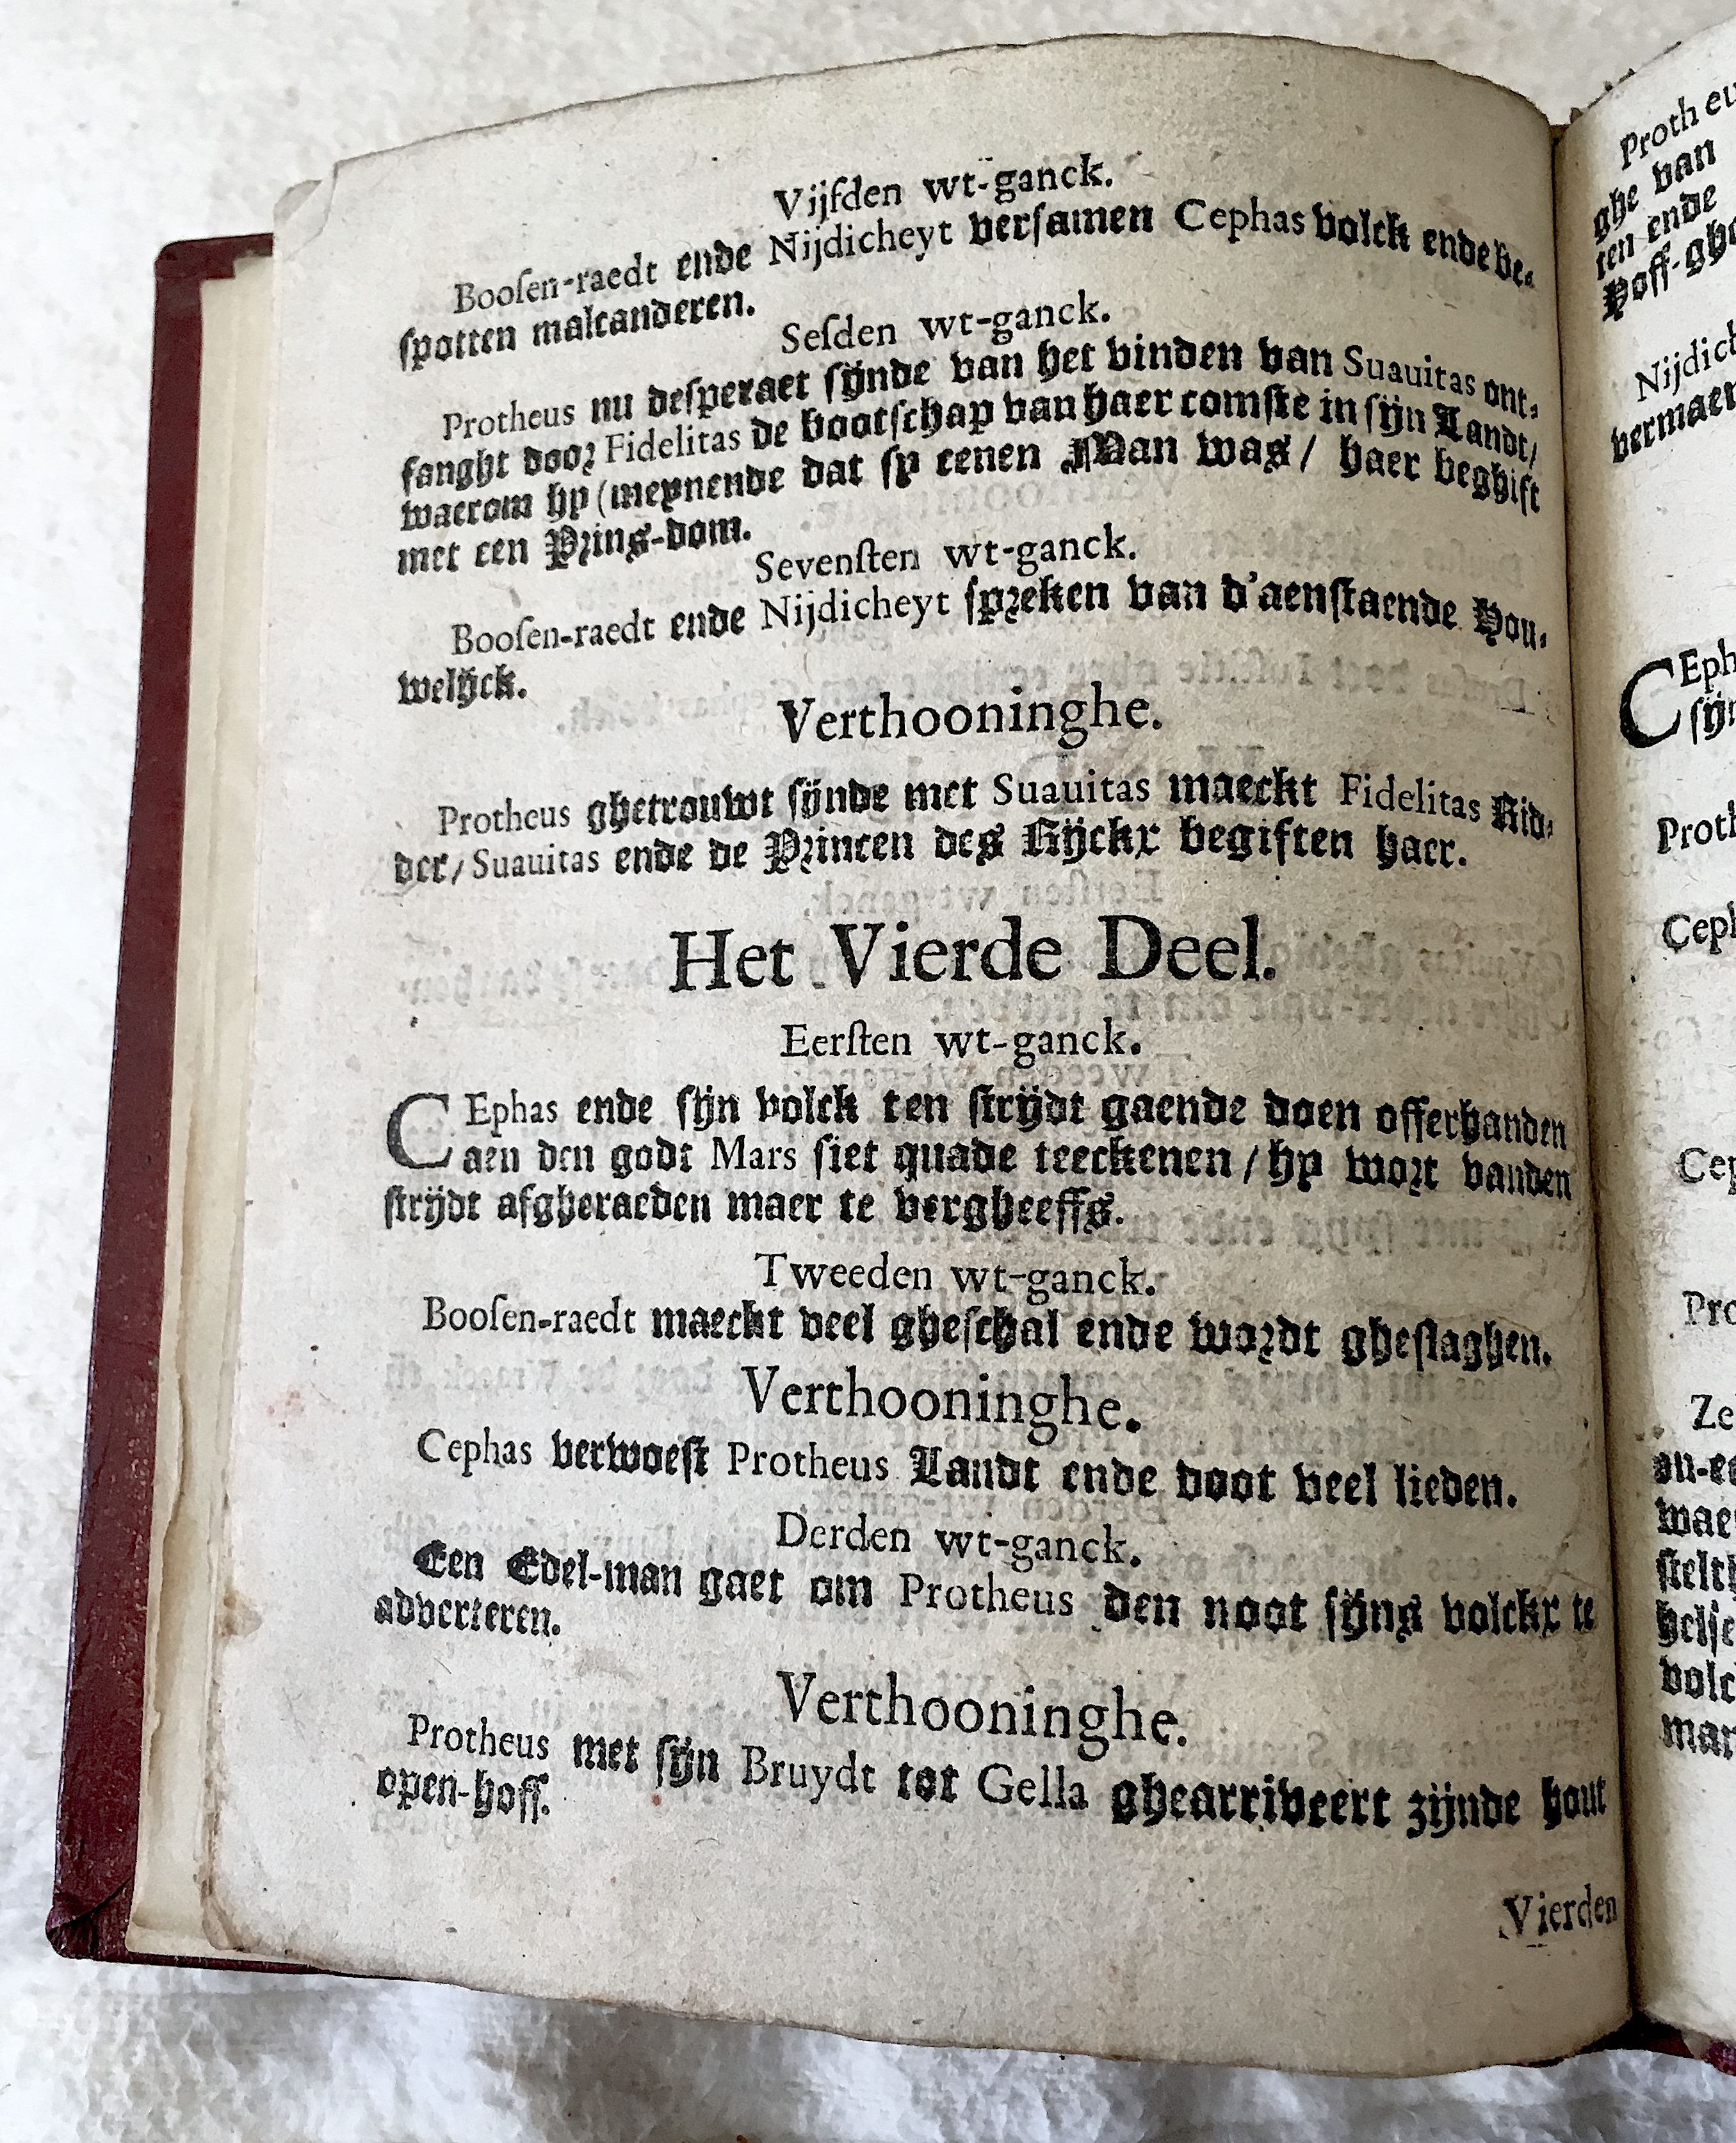 Vijfden wt-ganck.
Booſen-raedt ende Nijdicheyt verſamen Cephas volck ende be-
ſpotten malcanderen.
Seſden wt-ganck.
Protheus nu deſperaet ſijnde van het vinden van Suauitas ont-
fanght door Fidelitas de bootſchap van haer comſte in ſijn Landt/
waerom hy (meynende dat ſy eenen Man was/ haer beghift
met een Prins-dom.
Sevenſten wt-ganck.
Booſen-raedt ende Nijdicheyt ſpreken van d'aenſtaende Hou-
welijck.
Verthooninghe.
Protheus ghetrouwt ſijnde met Suauitas maeckt Fidelitas Rid-
der/ Suauitas ende de Princen des Rijckx begiften haer.
Het Vierde Deel.
Eerſten wt-ganck.
CEphas ende ſijn volck ten ſtrijdt gaende doen offerhanden
aen den godt Mars ſiet quade teeckenen / hy wort vanden
ſtrijdt afgheraeden maer te vergheeffs.
Tweeden wt-ganck.
Booſen-raedt maeckt veel gheſchal ende wordt gheſlaghen.
Verthooninghe.
Cephas verwoeſt Protheus Landt ende doot veel lieden.
Derden wt-ganck.
Een Edel-man gaet om Protheus den noot ſijns volckx te
adverteren.
Verthooninghe.
Protheus met ſijn Bruydt tot Gella ghearriveert zijnde hout
open-hoff.
Vierden
Proth eu
ghe van
ten ende
Hoff-ghe
Nijdich
vermaer
CEph
ſijn
Proth
Ceph
Cep
Pro
Ze
on-ee
wae
ſtelt
helſe
volc
mar